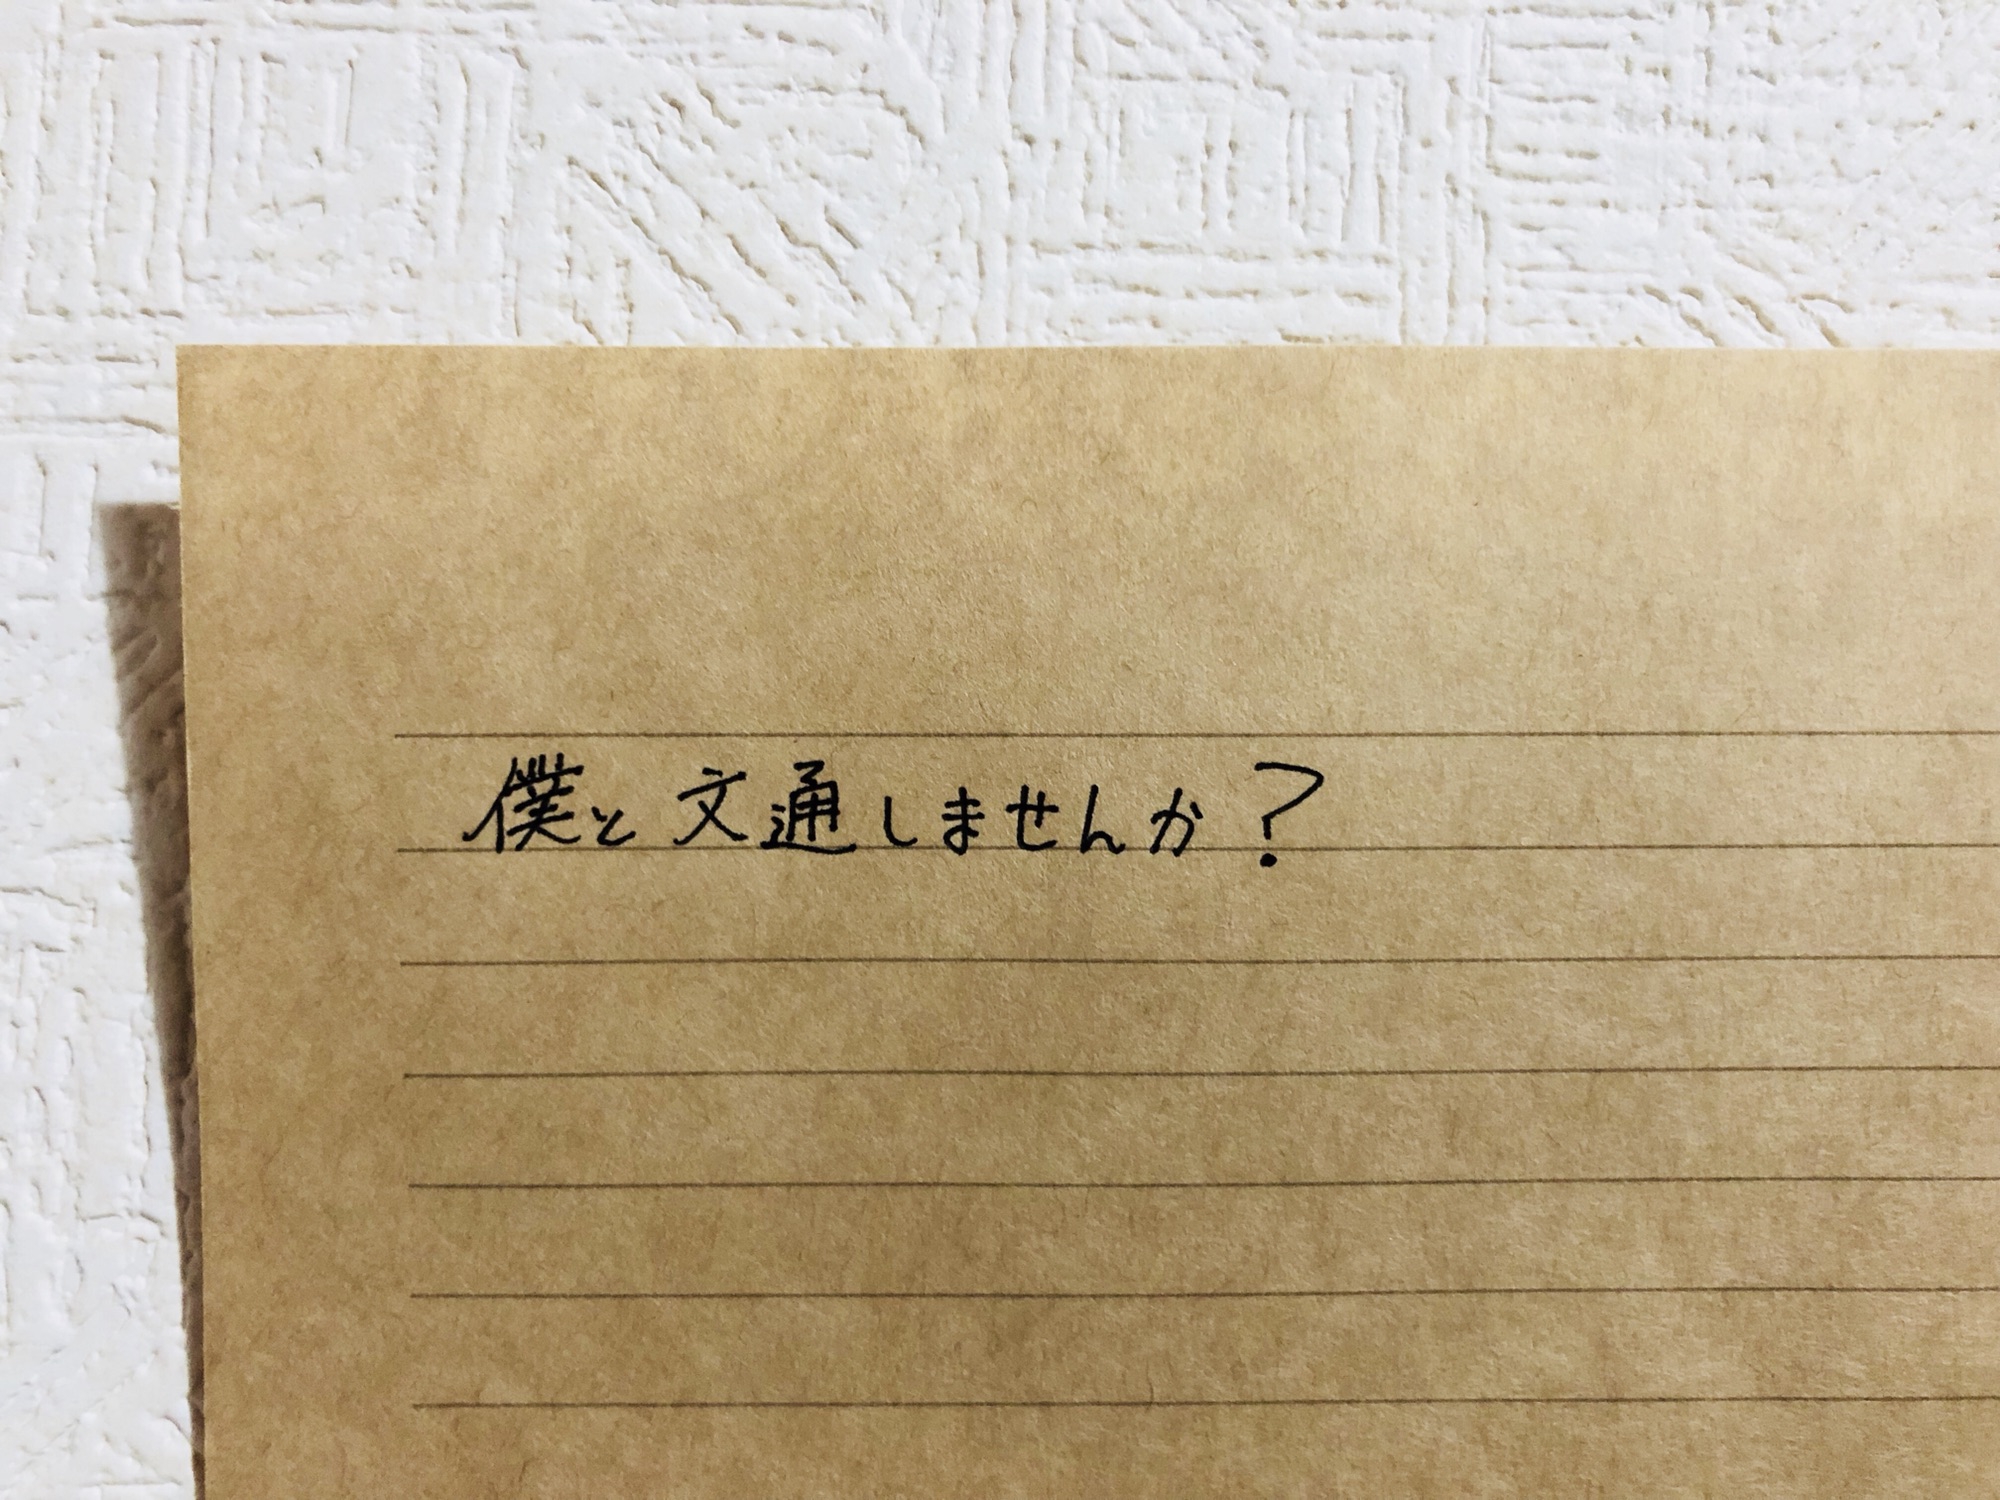 僕と文通しませんか?